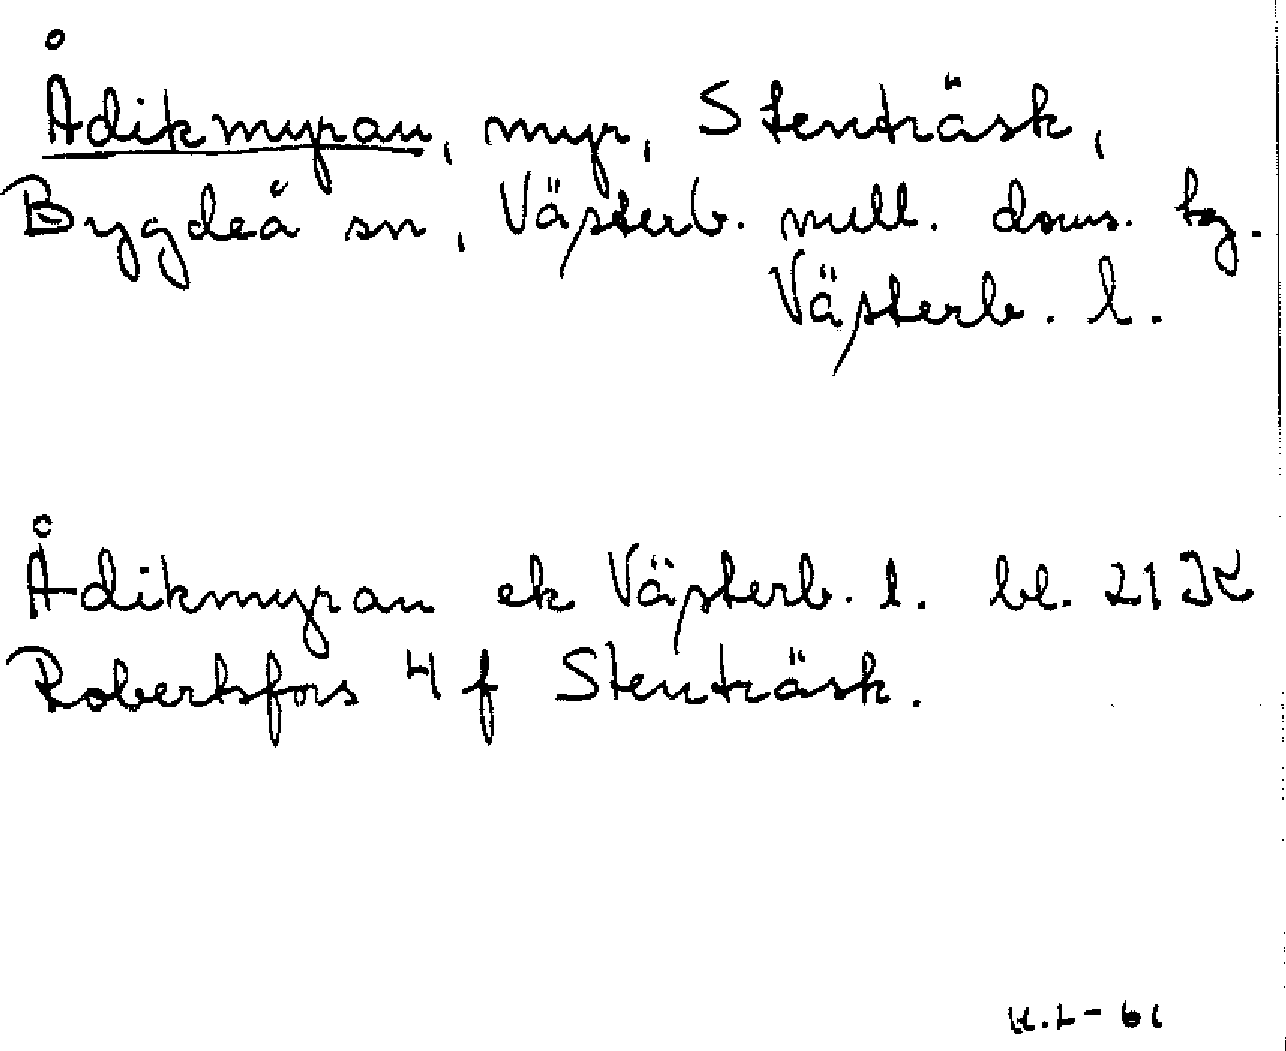 Ådikmyran, myr, Stenträsk,
Bygdeå sn, Västerb. mell. doms. tg.
Västerb. l.
Ådikmyran ek Västerb. l. bl. 21 K
Robertsfors 4 f Stenträsk.
K.L-61